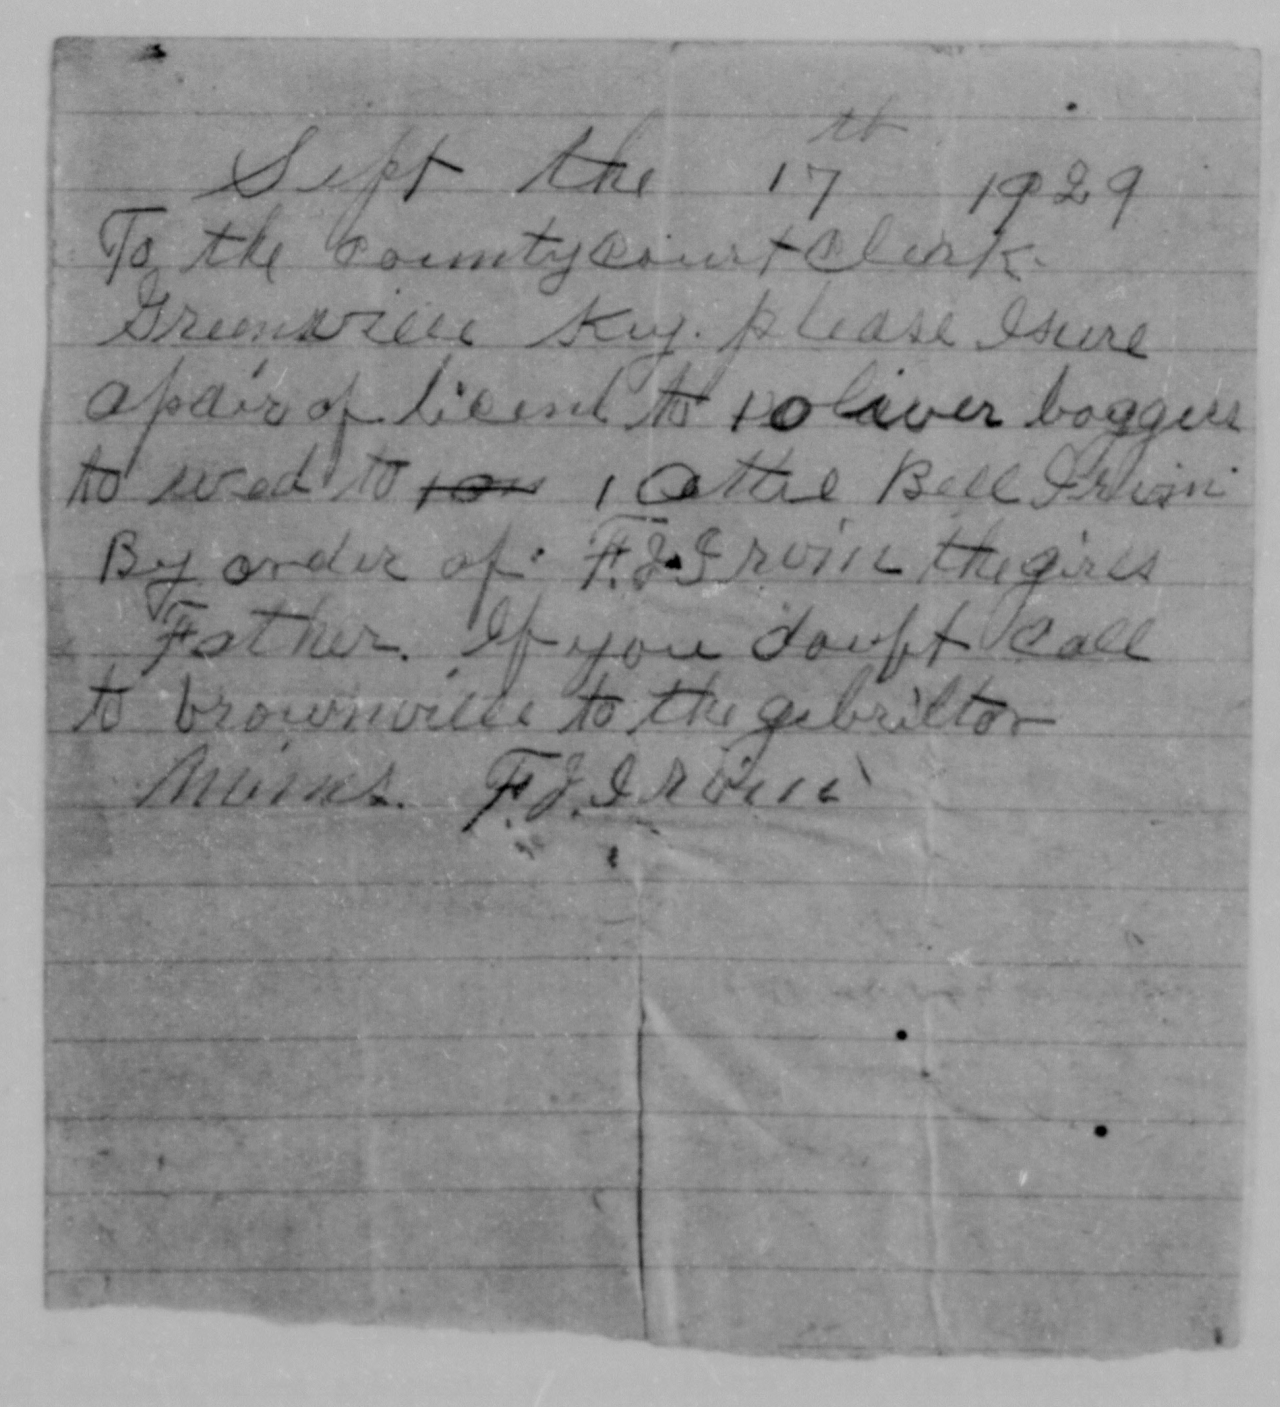 Sept the 17th 1929
To the county court Clerk.
Greenville Ky. please Isure
a pair of licens to 1 oliver boggess
to wed to 1 Ottie Bell Irvin
By order of. F.J. Irvin the girls
Father. If you douft call
to brownville to the gibrilton
Mines. F.J. Irvin